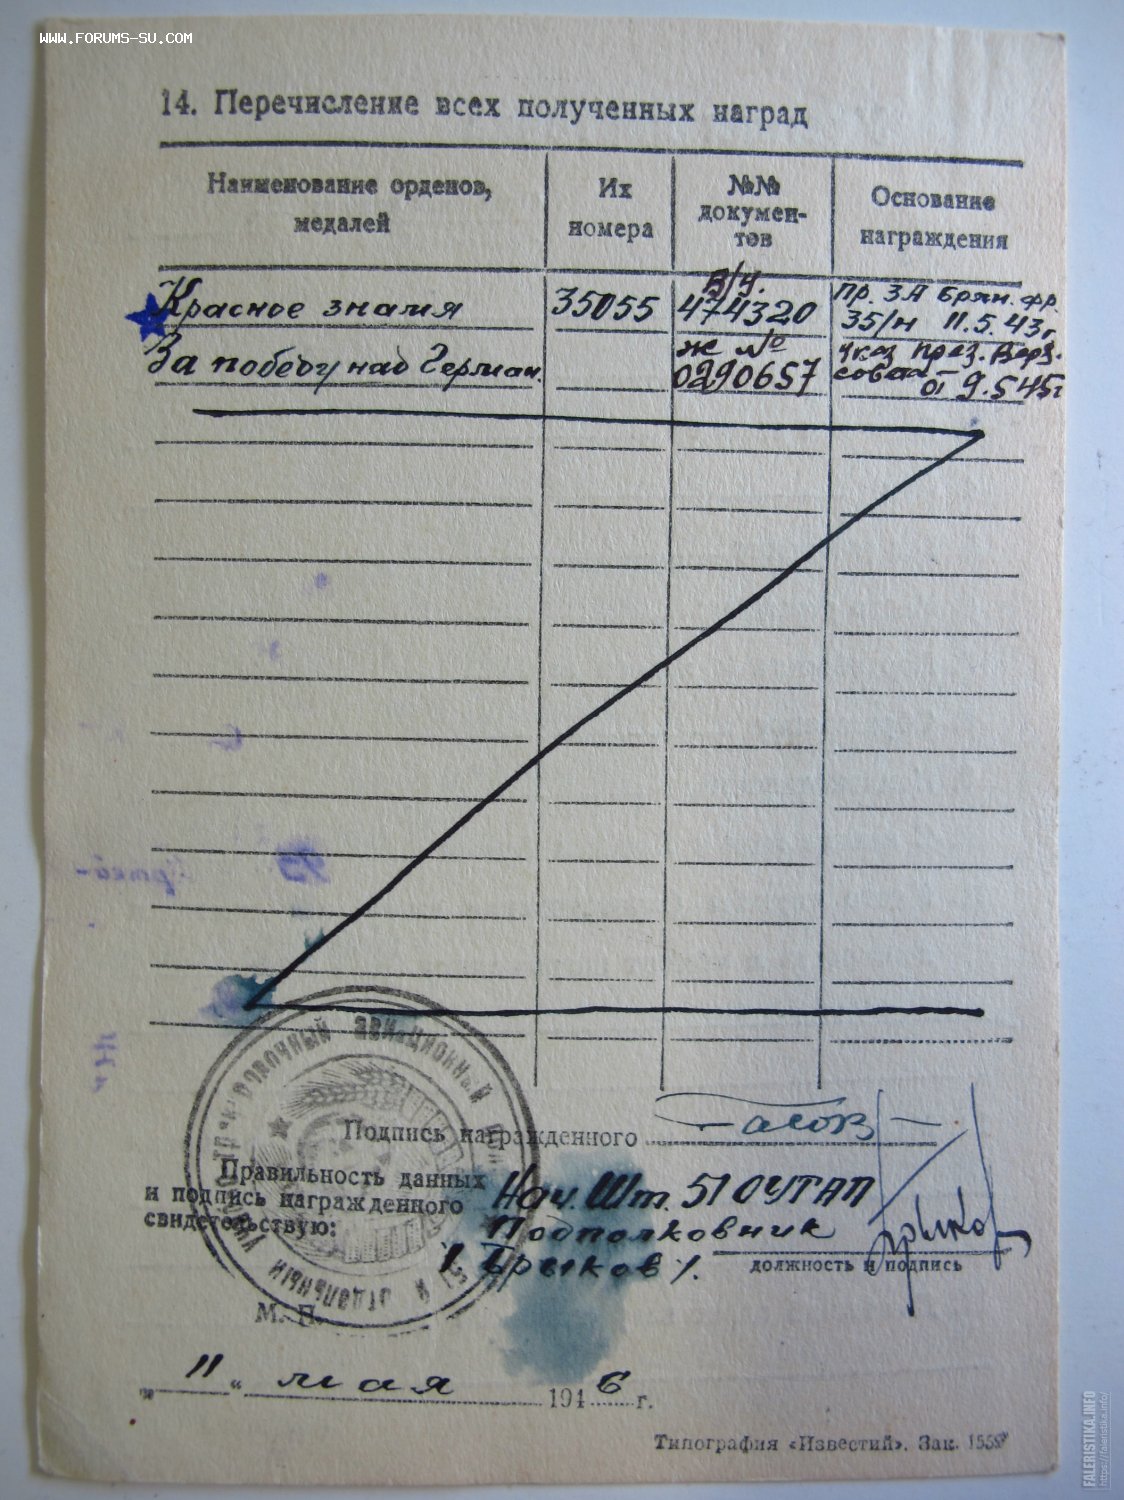 WWW.FORUMS-SU.COM
14. Перечисление всех полученных наград
Наименование орденов, медалей
Их номера
№№ документов
Основание награждения
Красное знамя 35055 в/у. 474320 Пр. 3А Брян. фр. 35/н 11.5.43г.
За победу над Герман. ж № 0290657 указ През. Верх. совета от 9.5.45г
Подпись награжденного
Правильность данных
и подпись награжденного
свидетельствую:
Нач. Шт. 51 ОУТАП
Подполковник
/Брыков/.
должность и подпись
М. П.
51 й отдельный учебно тренировочный авиационный
„ 11 “ мая 1946 г.
Типография «Известий». Зак. 1559
FALERISTIKA.INFO
https://faleristika.info/